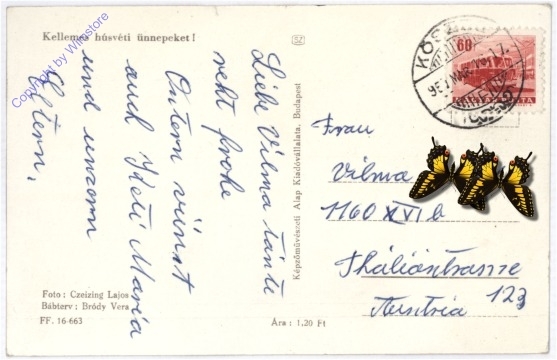 Kellemes húsvéti ünnepeket!
Copyright by Wnrstore
Liebe Vilma tante
recht frohe
Ostern wünst
auch Kati Maria
und unsern
Eltern,
Foto: Czeizing Lajos
Bábterv: Bródy Vera
FF. 16-663
Ára: 1,20 Ft
Képzőművészeti Alap Kiadóvállalata, Budapest
60
MAGYAR POSTA
KŐSZEG
Frau
Vilma
1160 XVI b
Tháliastrasse
123
Austria